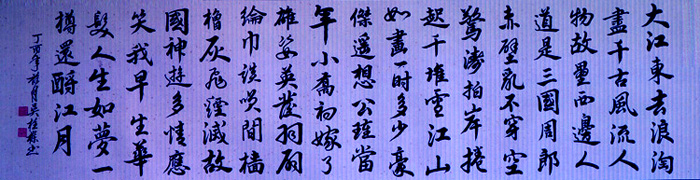 大江東去浪淘
盡千古風流人
物故壘西邊人
道是三國周郎
赤壁亂石穿空
驚濤拍岸捲
起千堆雪江山
如畫一時多少豪
傑遥想公瑾當
年小喬初嫁了
雄姿英發羽扇
綸巾談笑間檣
櫓灰飛煙滅故
國神遊多情應
笑我早生華
髮人生如夢一
樽還酹江月